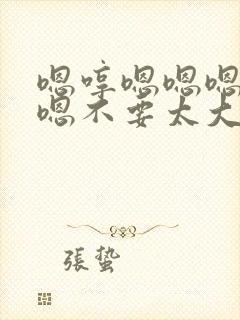 嗯哼嗯嗯嗯
嗯不要太大
張蟄